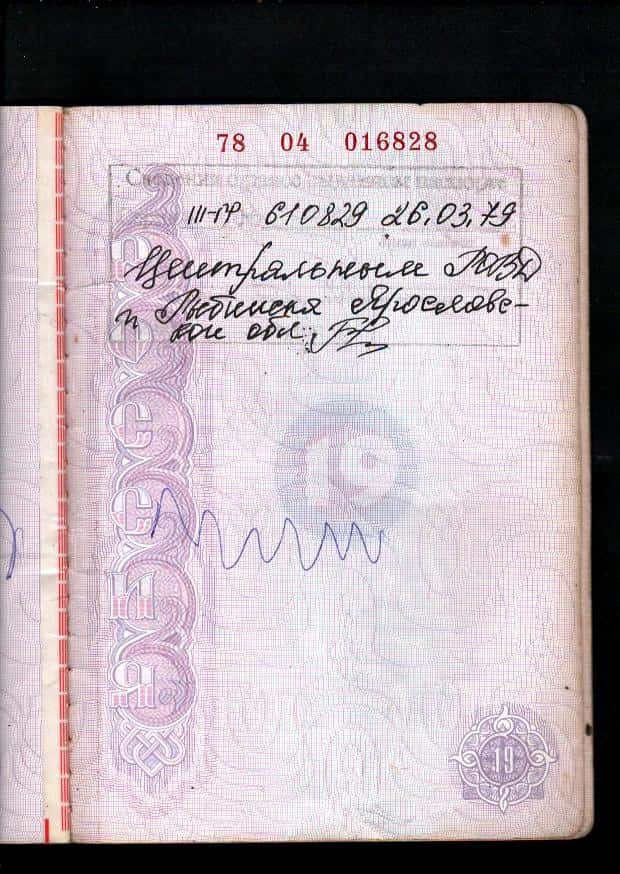 78 04 016828
Сведения о ранее выданном паспорте
III-ГР 610829 26.03.79
Центральным РОВД
г. Рыбинска Ярославс-
кой обл.
РОССИЯ
19
19